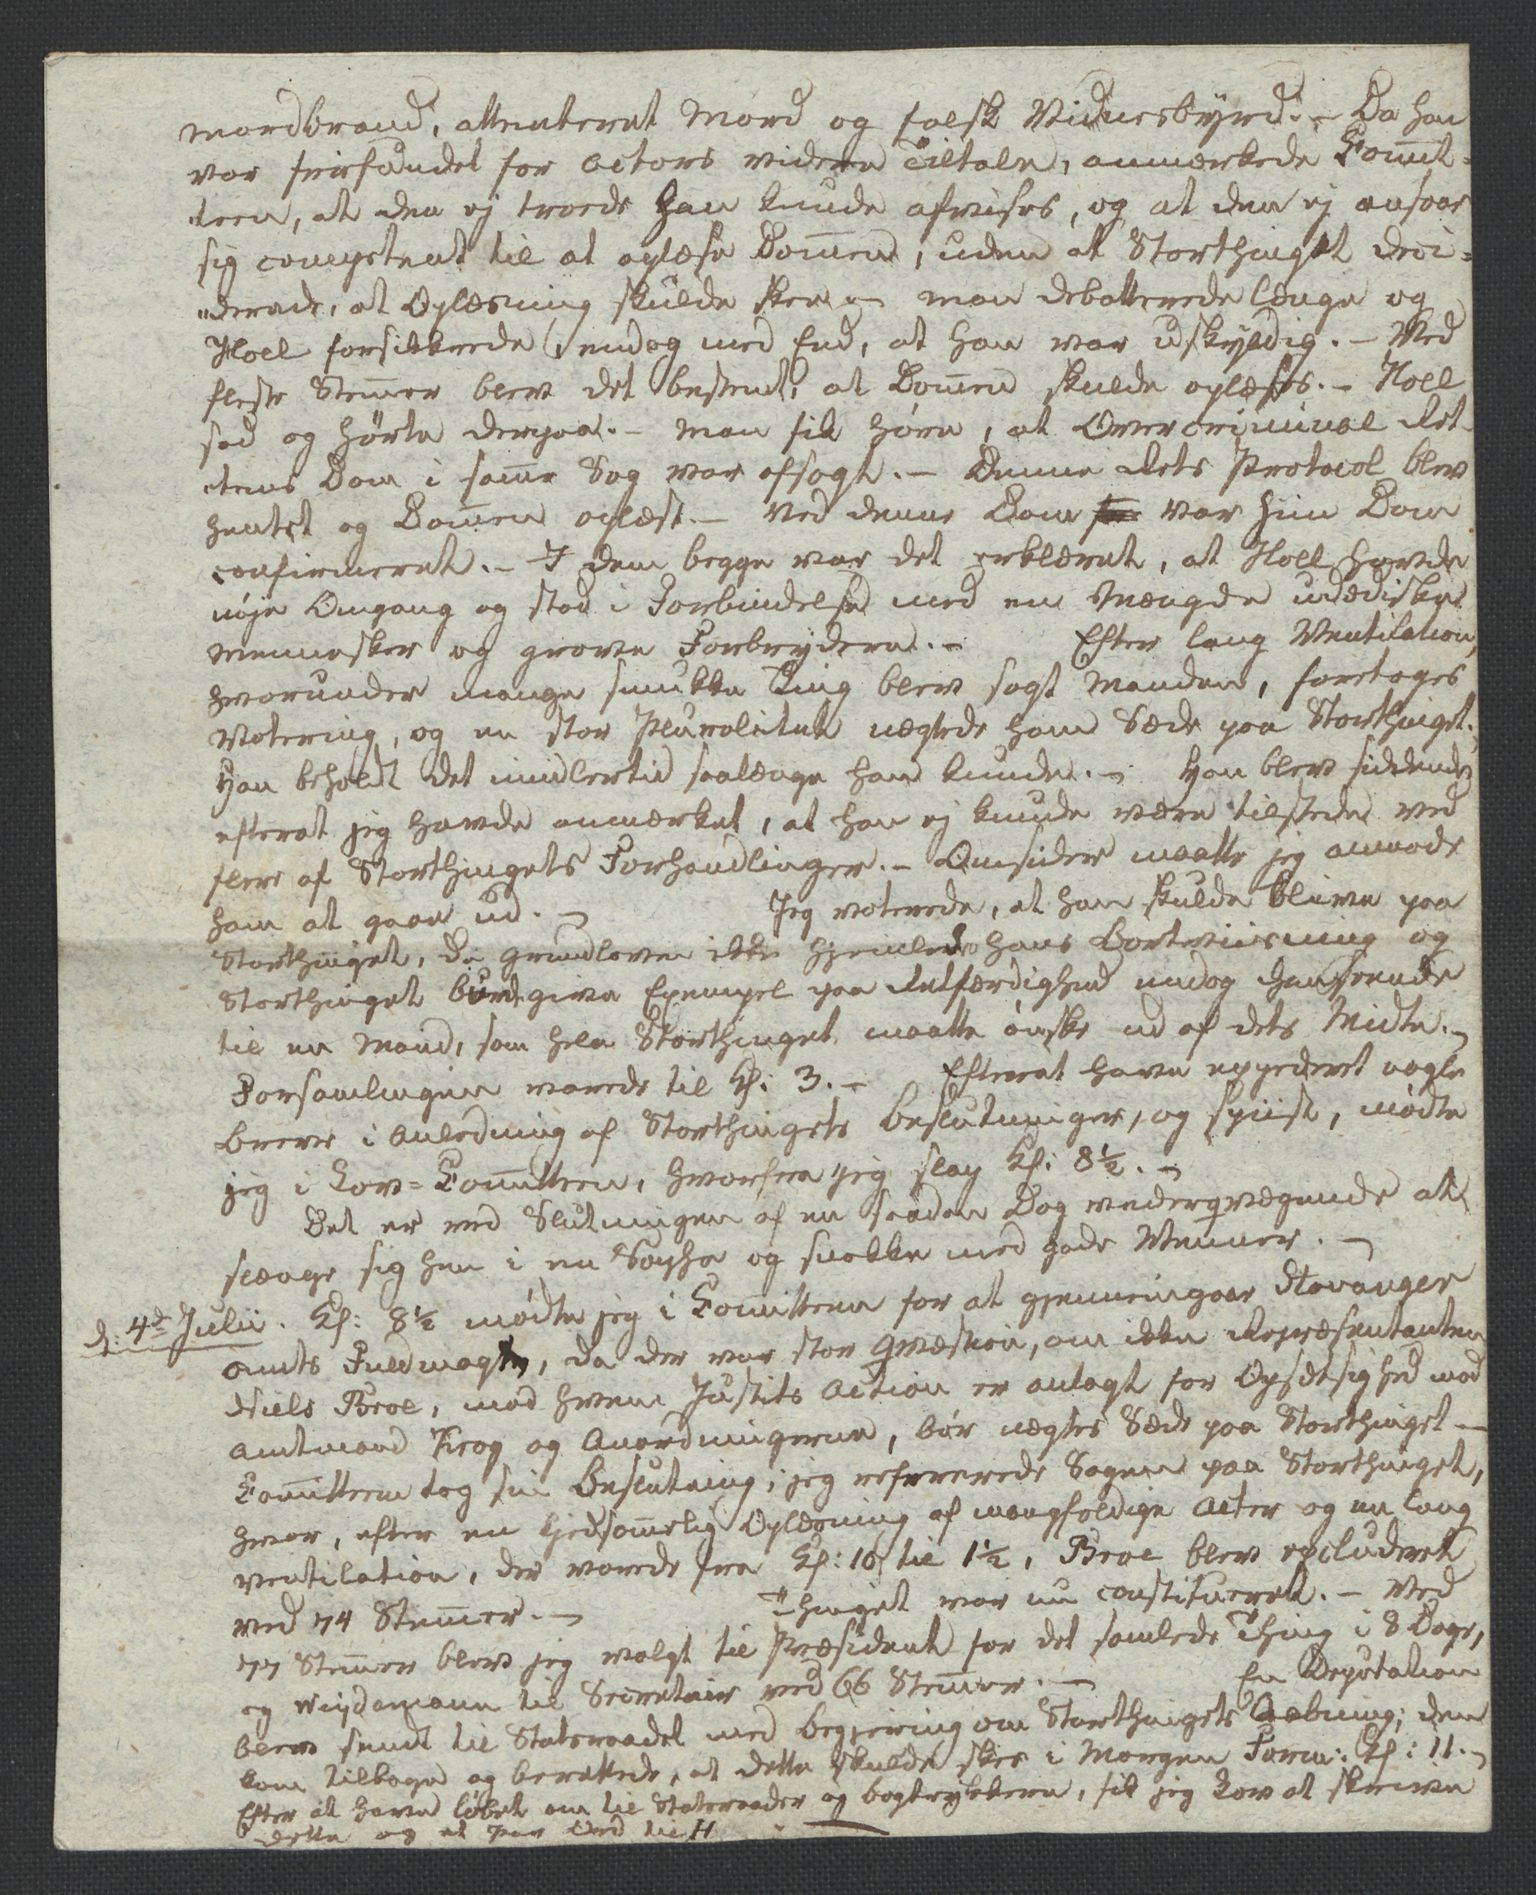 Mordbrand, attenteret Mord og falsk Vidnesbyrd. – Da han
var friefundet for Actors videre Tiltale, anmærkede Comit-
teen, at den ej troede han kunde afvises, og at den ej ansaae
sig competent til at oplæse Dommen, uden at Storthinget deci-
derede, at Oplæsning skulde skee – man debatterede længe og
Holl forsikkrede, endog med Eed, at han var uskyldig. – Med
fleste Stemmer blev det bestemt, at Dommen skulde oplæses. – Holl
sad og hørte derpaa. – Man fik høre, at Overcriminal Ret-
tens Dom i samme Sag var afsagt. – Denne Rets Protocol blev
hentet og Dommen oplæst. – Ved denne Dom var hiin Dom
confirmeret. – I dem begge var det erklæret, at Holl havde
nøje Omgang og stod i Forbindelse med en Mængde udædiske
Mennesker og grove Forbrydere. – Efter lang Ventilation,
hvorunder mange smukke Ting blev sagt Manden, foretoges
Votering, og en stor Pluralitet nægtede ham Sæde paa Storthinget.
Han beholdt det imidlertid saalænge han kunde. – Han blev siddende
efterat jeg havde anmærket, at han ej kunde være tilstede ved
flere af Storthingets Forhandlinger. – Omsider maatte jeg anmode
ham at gaae ud. – Jeg voterede, at han skulde blive paa
Storthinget, da Grundloven ikke hjemlede hans Bortviisning og
Storthinget burde give Exempel paa Retfærdighed endog henseende
til en Mand, som hele Storthinget maatte ønske ud af dets Midte. –
Forsamlingen varede til Kl: 3. – Efterat have expederet nogle
Breve i Anledning af Storthingets Beslutninger, og spiist, mødte
jeg i Lov-Comitteen, hvorfra jeg slap Kl: 8½. –
Det er ved Slutningen af en saadan Dag vederqvægende at
slænge sig hen i en Sopha og snakke med gode Venner. –
d: 4de Julii. Kl: 8½ mødte jeg i Comitteen for at gjennemgaae Stavanger
Amts Fuldmagt, da der var stor Qvæstion, om ikke Repræsentanten
Niels Broe, mod hvem Justits Action er anlagt for Opsætsighed mod
Amtmand Krog og Anordningerne, bør nægtes Sæde paa Storthinget –
Comitteen tog sin Beslutning; jeg refererede Sagen paa Storthinget,
hvor, efter en kjedsommelig Oplæsning af mangfoldige Acter og en lang
Ventilation, der varede fra Kl: 10 til 1½, Broe blev excluderet
ved 74 Stemmer. – Thinget var nu constitueret. – Med
77 Stemmer blev jeg valgt til Præsident for det samlede Thing i 8 Dage,
og Weidemann til Secretair ved 66 Stemmer. – En Deputation
blev sendt til Statsraadet med Begjering om Storthingets Aabning; den
kom tilbage og berettede, at dette skulde skee i Morgen Form: Kl: 11. –
Efter at have løbet om til Statsraader og Bogtrykkere, fik jeg Lov at skrive
dette og et Par Ord til H